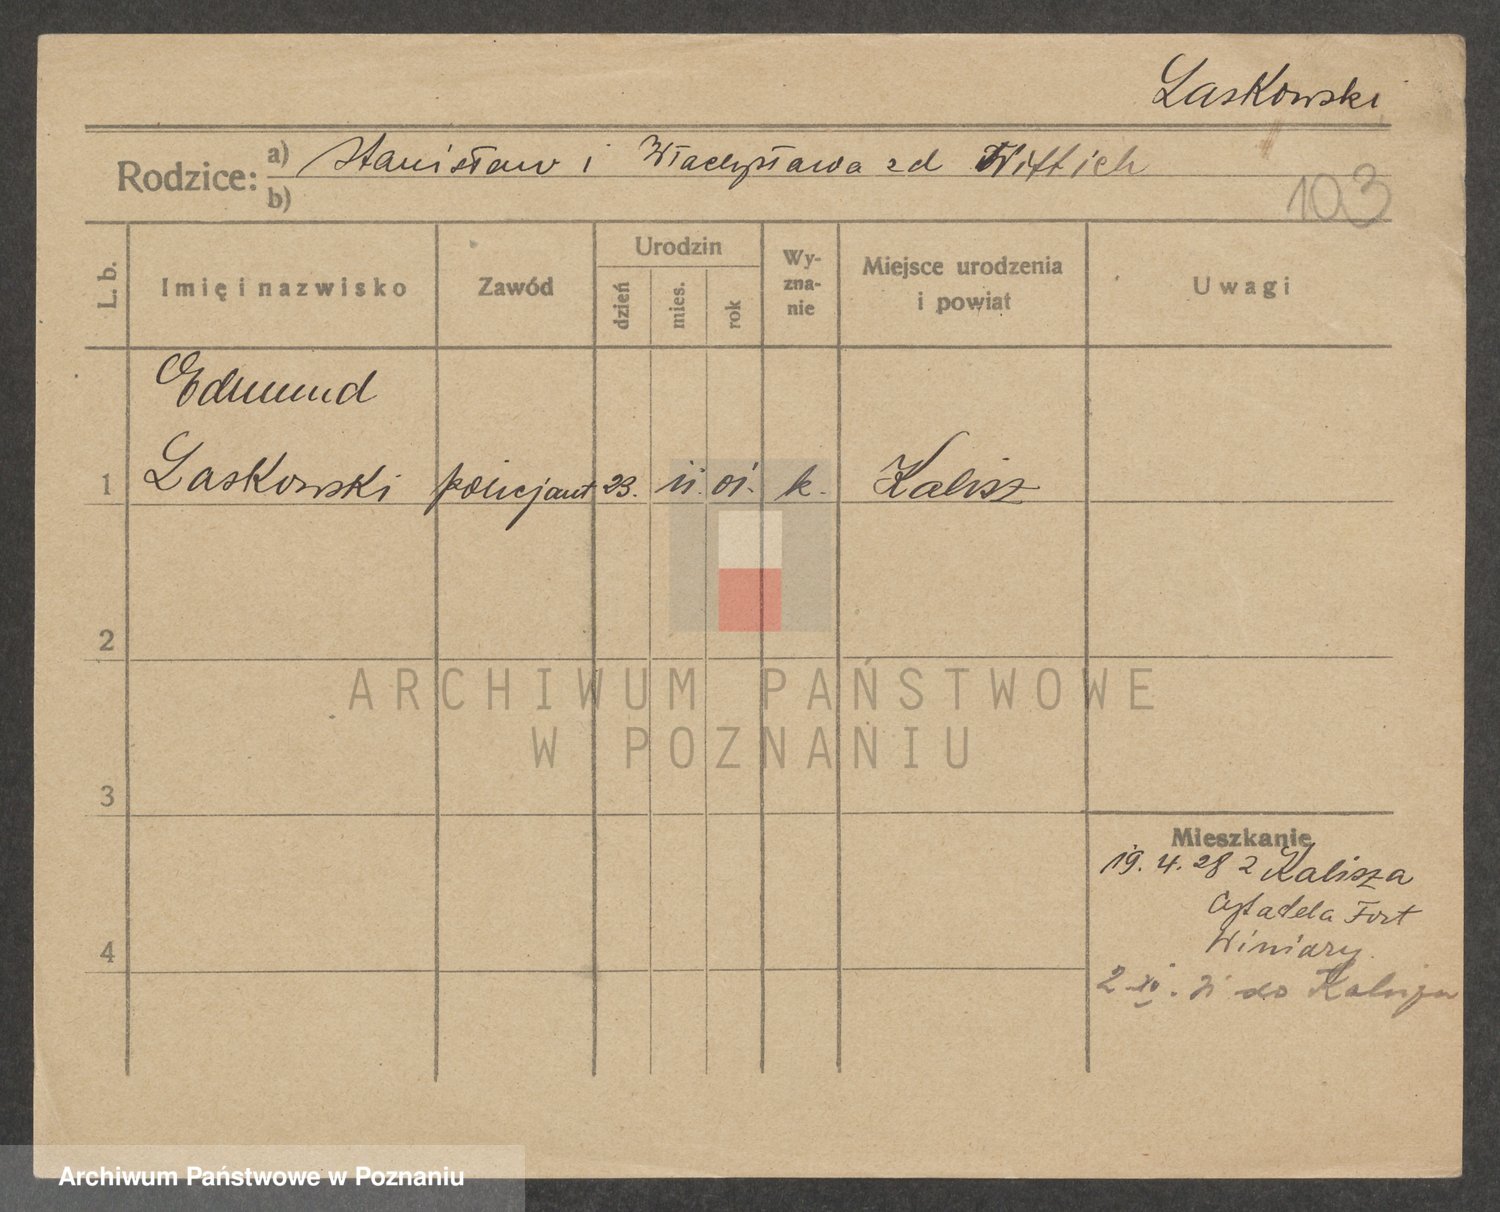 Laskowski
Rodzice: a) Stanisław i Władysława zd Wittich
b)
103
L. b.
Imię i nazwisko
Zawód
Urodzin
dzień
mies.
rok
Wy-
zna-
nie
Miejsce urodzenia
i powiat
Uwagi
Edmund
1 Laskowski policjant 23. 11. 01. k. Kalisz
2
ARCHIWUM PAŃSTWOWE
W POZNANIU
3
Mieszkanie
19. 4. 28 z Kalisza
Cytadela Fort
Winiary.
4
2 XI. 31 do Kalisza
Archiwum Państwowe w Poznaniu